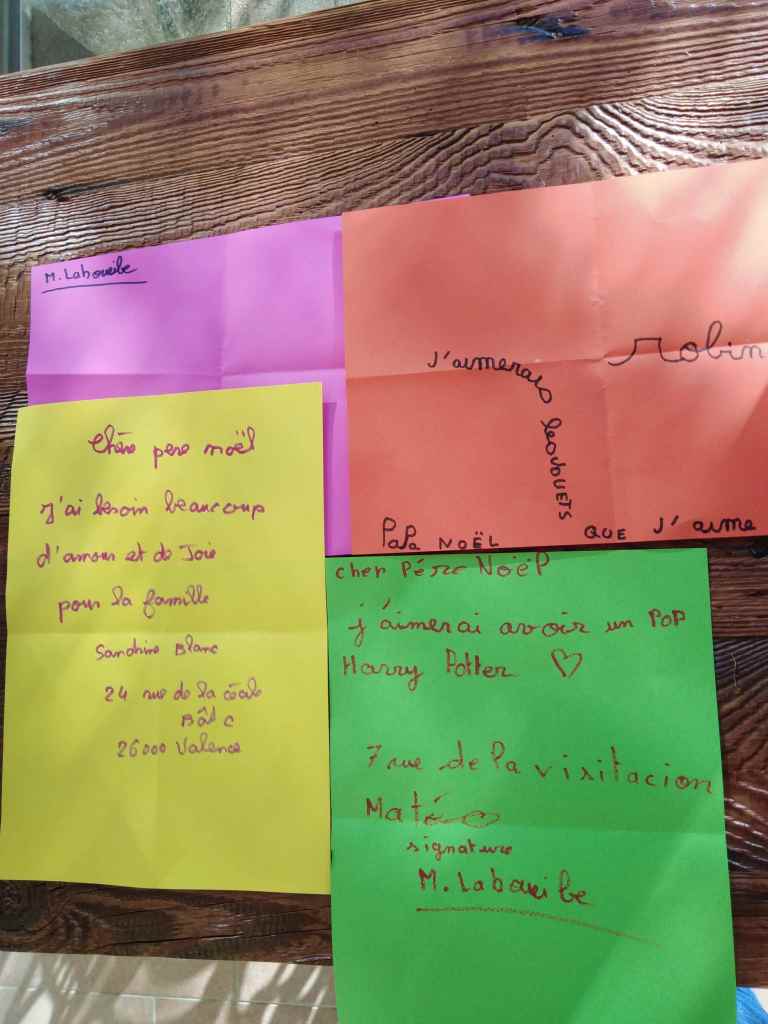 M. Laboueibe
Robin
J'aimerais
les JOUETS
PaPa NOËL
QUE J'aime
Chère père noël
J'ai besoin beaucoup
d'amour et de Joie
pour la famille
Sandrine Blanc
24 rue de la
Bât C
26000 Valence
cher Père Noël
j'aimerai avoir un POP
Harry Potter ♡
7 rue de la visitacion
Maté
signature
M. Laboueibe